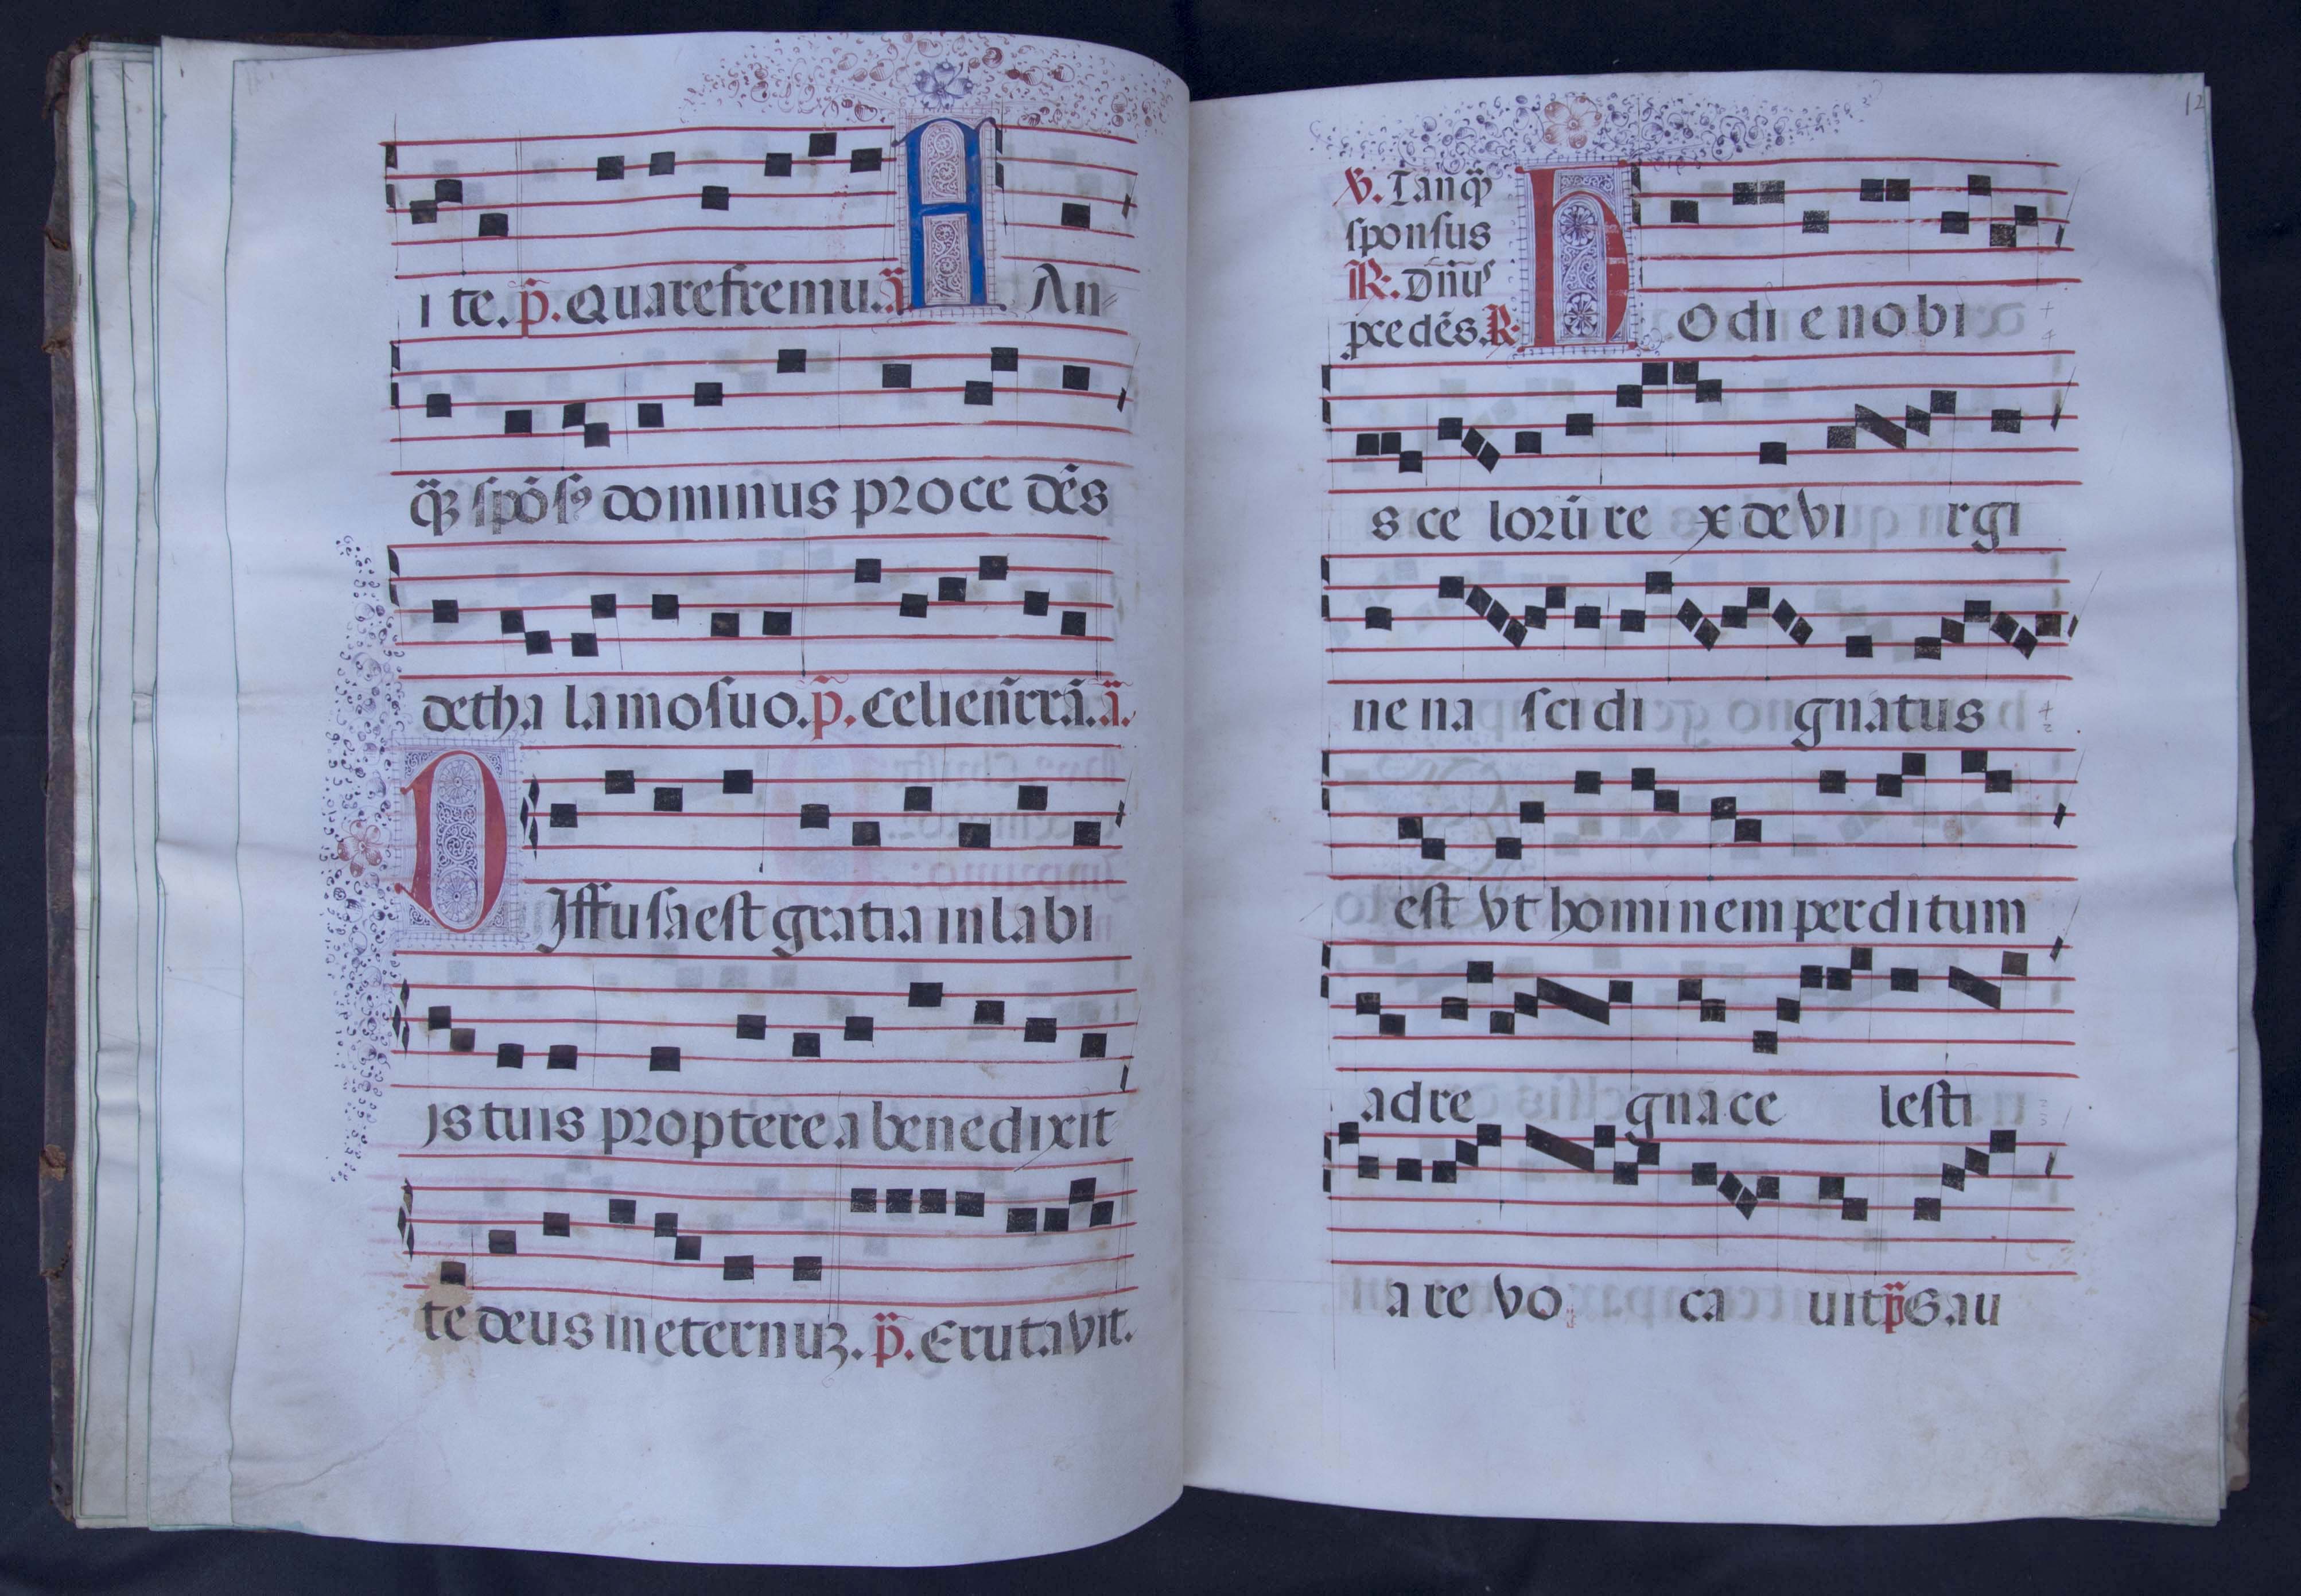 i te. p̃. Quare fremu. ã A An-
q̃ʒ spō sꝰ dominus proce dēs
de tha lamo suo. p̃. Celi enr̄rā. ã.
D Iffu sa est gratia in labi
js tuis propterea benedixit
te deus in eternuʒ. p̃. Erutavit.
12
℣. Tanq̃
sponsus
℟. Dn̄us
p̲cedēs. ℟. h O di e nobi
s ce lorū re x de vi rgi
ne na sci di gnatus
est vt hominem perditum
ad re gna ce lesti
a re vo ca uit p̃ Gau